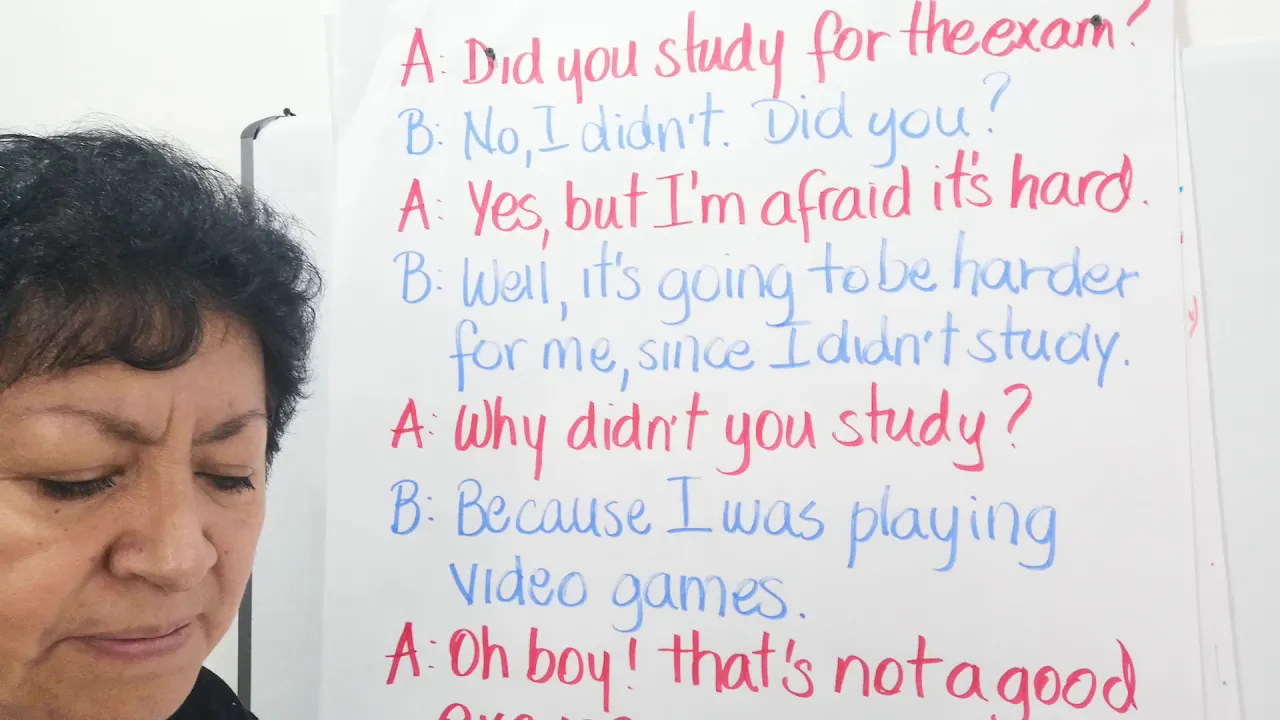 A: Did you study for the exam?
B: No, I didn't. Did you?
A: Yes, but I'm afraid it's hard.
B: Well, it's going to be harder
for me, since I didn't study.
A: Why didn't you study?
B: Because I was playing
video games.
A: Oh boy! that's not a good